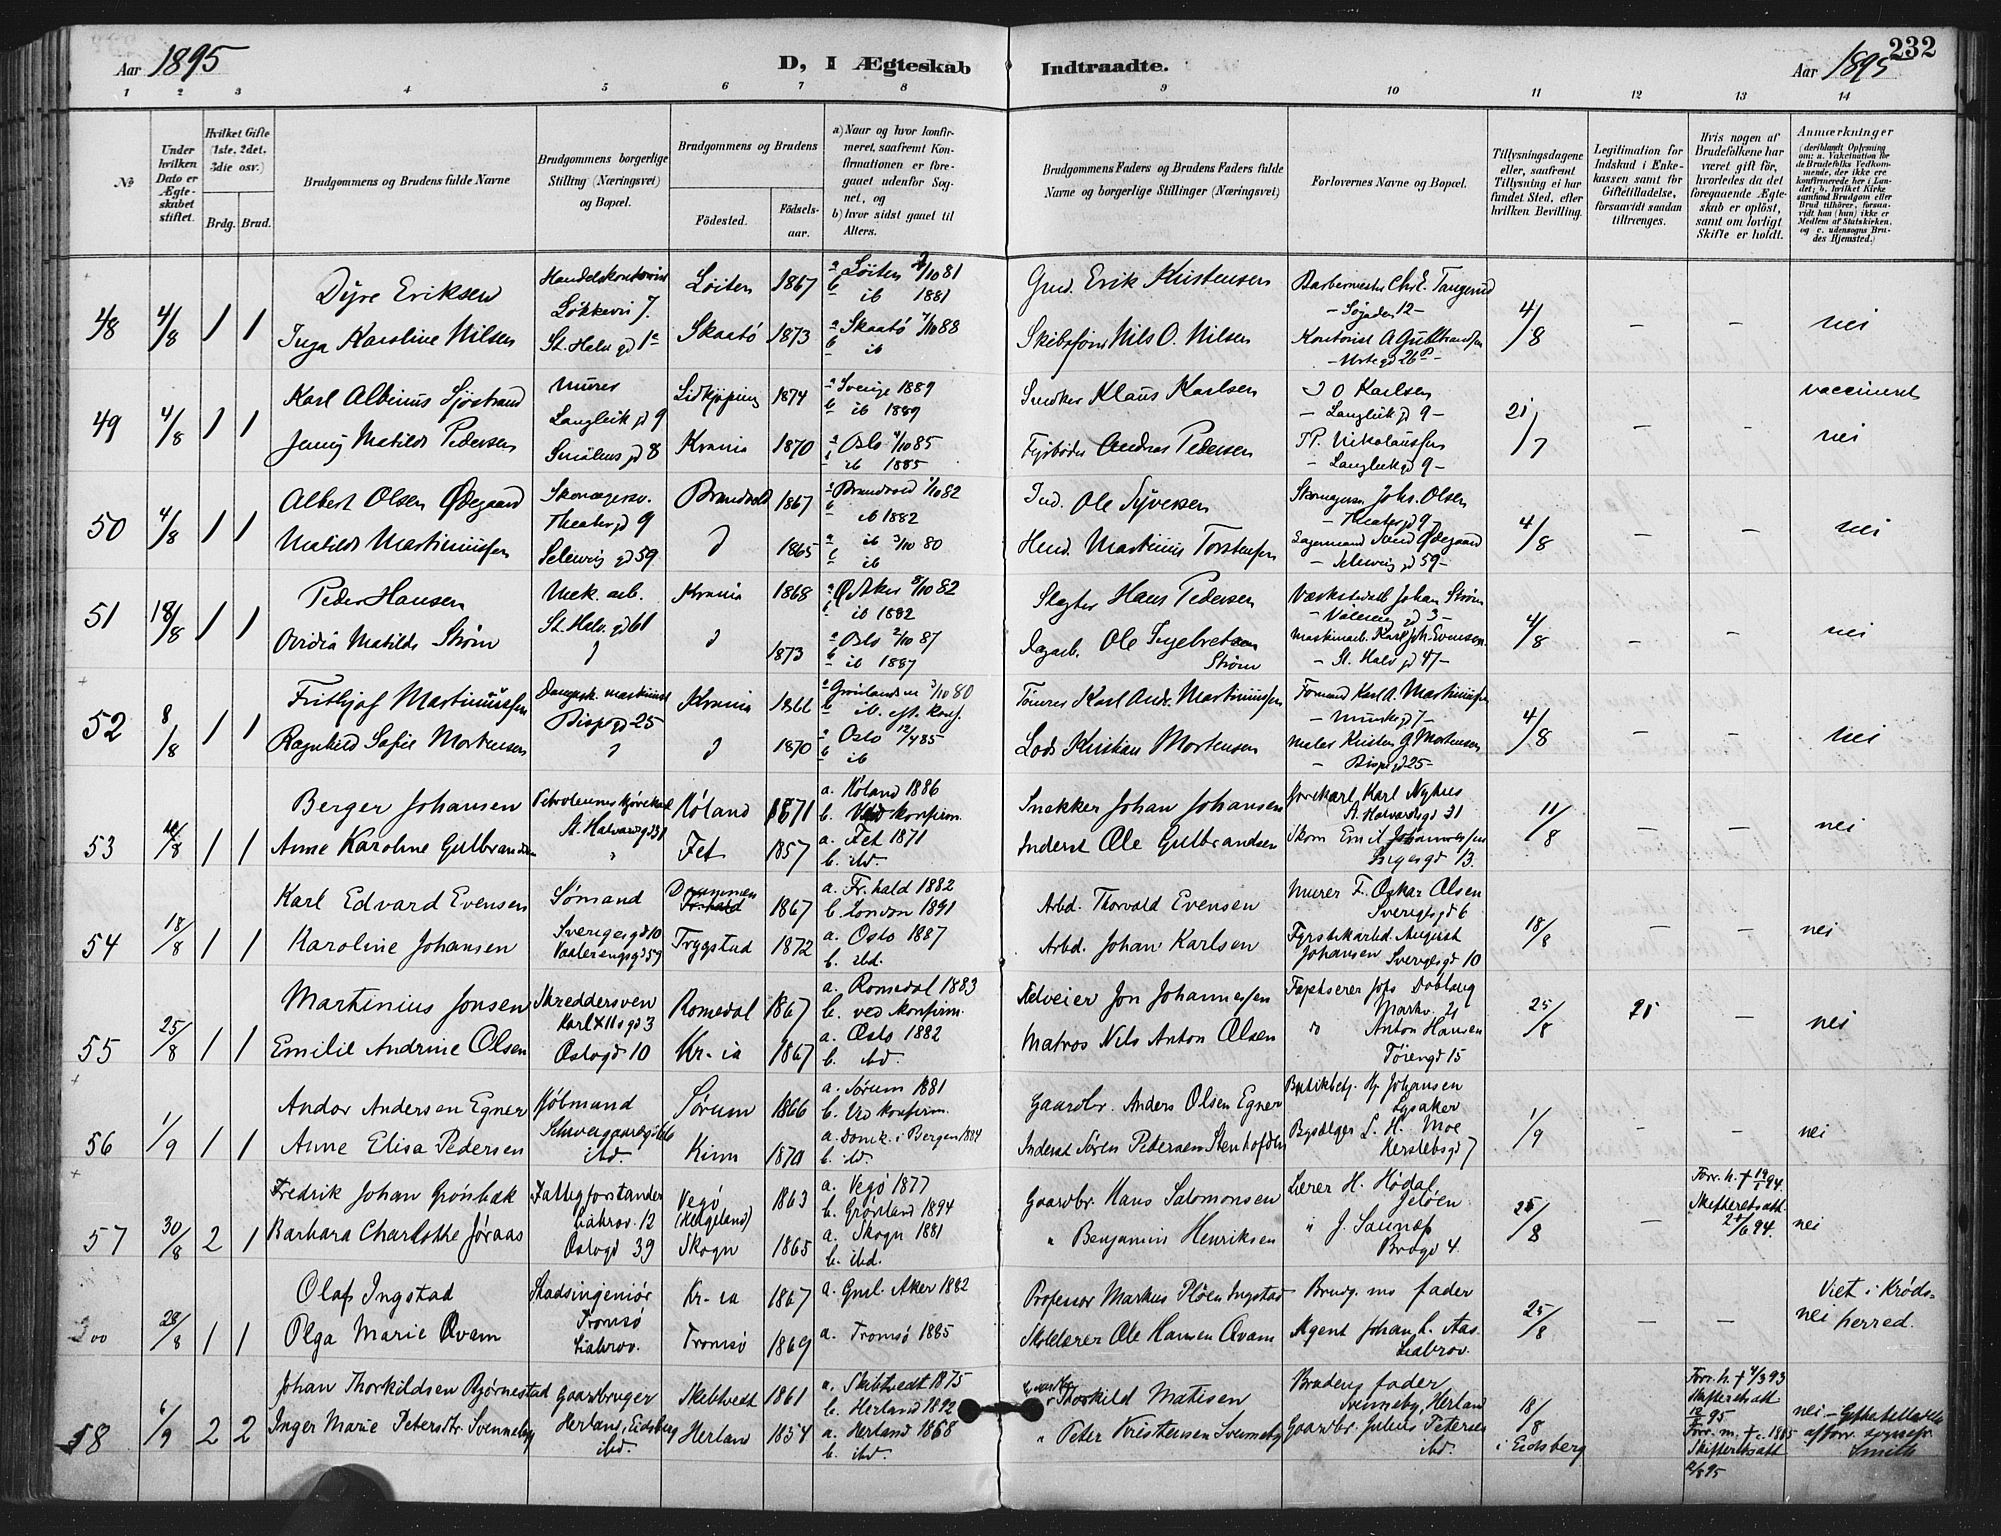 Aar 1895
D, I Ægteskab Indtraadte.
Aar 1895
232
1 2 3 4 5 6 7 8 9 10 11 12 13 14
No
Under hvilken Dato er Ægteskabet stiftet.
Hvilket Gifte (1ste, 2det, 3die osv.)
Brdg. Brud.
Brudgommens og Brudens fulde Navne
Brudgommens borgerlige Stilling (Næringsvei) og Bopæl.
Brudgommens og Brudens
Födested.
Födselsaar.
a) Naar og hvor konfirmeret, saafremt Konfirmationen er foregaaet udenfor Sognet, og
b) hvor sidst gaaet til Alters.
Brudgommens Faders og Brudens Faders fulde Navne og borgerlige Stillinger (Næringsvei)
Forlovernes Navne og Bopæl.
Tillysningsdagene eller, saafremt Tillysning ei har fundet Sted, efter hvilken Bevilling.
Legitimation for Indskud i Enkekassen samt for Giftetilladelse, forsaavidt saadan tiltrænges.
Hvis nogen af Brudefolkene har været gift før, hvorledes da det foregaaende Ægteskab er oplöst, samt om lovligt Skifte er holdt.
Anmærkninger (deriblandt Oplysning om: a. Vakcination for de Brudefolks Vedkommende, der ikke ere konfirmerede her i Landet; b. hvilket Kirkesamfund Brudgom eller Brud tilhörer, forsaavidt han (hun) ikke er Medlem af Statskirken, og c. udensogns Brudes Hjemsted.)
48 4/8 1 1
Dyre Eriksen
Løiten 1867
a Løiten 2/10 81
b ib 1881
Gmd. Erik Kristensen
Barbermester Chr. E. Tangerud
4/8 – –
Inga Karoline Nilsen
St. Halv gd 1a
Skaatö 1873
a Skaatö 7/10 88
b ib
Nils O. Nilsen
nei
49 4/8 1 1
Karl Albinus Sjöstrand
Murer
Langleik gd 9
Lidkjøping 1874
a Sverige 1889
b ib 1889
Klaus Karlsen
J O Karlsen
– Langleik gd 9 –
21/7 – –
vaccineret
Jenny Matilde Pedersen
Smålens gd 8
Krania 1870
a Oslo 4/10 85
b ib 1885
Fyrbøder Andreas Pedersen
– Langleik gd 9 –
nei
50 4/8 1 1
Albert Olsen Ødegaard
Theater gd 9
Brandvold 1867
a Brandvold 1/10 82
b ib 1882
Ind. Ole Syversen
Johs. Olsen
– Theater gd 9 –
4/8 – –
Matilde Martinussen
Slesvig gd 59
1865
a ib 3/10 80
b ib
Martinus Torstensen
Ødegaard
– Slesvig gd 59 –
nei
51 18/8 1 1
Peder Hansen
Mek. arb.
St. Halv. gd 61
Krania 1868
a Ø. Aker 8/10 82
b ib 1882
Slagter Hans Pedersen
Johan Strøm
4/8 – –
Ovidia Matilde Strøm
1873
a Oslo 2/10 87
b ib 1887
Dagarb. Ole Ingebretsen Strøm
Maskinarb. Karl Joh. Evensen
– St. Halv gd 47 –
nei
52 8/8 1 1
Frithjof Martinussen
Dampsk. maskinist
Bispegd 25
Krania 1866
a Grønlands m 3/10 80
b ib. eft. konf.
Tømrer Karl Andr. Martinussen
Formand Karl A. Martinussen
– Munkegd 7 –
4/8 – –
Ragnhild Sofie Mortensen
1870
a Oslo 12/4 85
b ib
Lods Kristian Mortensen
Maler Kristen G. Mortensen
– Bispegd 25 –
nei
53 11/8 1 1
Berger Johansen
St. Halvardsgd 31
Röland 1871
a. Röland 1886
b. Ved konfirm.
Snekker Johan Johansen
Karl Nyhus
St. Halvardsgd 31
11/8 – –
Anne Karoline Gulbrandsen
Fet 1857
a. Fet 1871
b. ibd.
Inderst Ole Gulbrandsen
Skom Emil Johannessen
nei
54 18/8 1 1
Karl Edvard Evensen
Sömand
Sverigesgd 10
Drammen Fr.hald 1867
a. Fr. hald 1882
b. London 1891
Arbd. Thorvald Evensen
Murer F. Oskar Olsen
Sverigesgd 6
18/8 – –
Karoline Johansen
Vaalerengsgd 59
Trygstad 1872
a. Oslo 1887
b. ibd.
Arbd. Johan Karlsen
August Johansen Sverigesgd 10
nei
55 25/8 1 1
Martinius Jonsen
Skreddersven
Karl XIIs gd 3
Romedal 1867
a. Romedal 1883
b. ved konfirm.
Selveier Jon Johannessen
25/8 –
Emilie Andrine Olsen
Oslogd 10
Kr-ia 1867
a. Oslo 1882
b. ibd.
Matros Nils Anton Olsen
Anton Hansen
Töiengd 15
nei
56 1/9 1 1
Andor Andersen Egner
Kjöbmand
Sörum 1866
a. Sörum 1881
b. Ved konfirm.
Gaardbr. Anders Olsen Egner
Hj. Johansen
Lysaker
1/9 – –
Anne Elisa Pedersen
ibd.
Kinn 1870
a. Domk. i Bergen 1884
b. ibd.
Inderst Sören Pedersen
L. H. Moe
Herslebsgd 7
nei
57 30/8 2 1
Fredrik Johan Grönbæk
Fattigforstander
Liabrov. 12
Vegö (Helgeland) 1863
a. Vegö 1877
b. Grönland 1894
Gaardbr. Hans Salomonsen
Lærer H. Hödal
Jelöen
25/8 –
Forr. h. † 19/1 94.
Skifteretsatt. 21/6 94.
Barbara Charlotte Jöraas
Oslogd 39
Skogn 1865
a. Skogn 1881
b. ibd.
" Benjamin Henriksen
Brogd 4.
nei
28/8 1 1
Olaf Ingstad
Stadsingeniör
Tromsö
Kr-ia 1867
a. Gml. Aker 1882
Professor Markus Plöen Ingstad
Brudg. ms fader
25/8 – –
Viet i Krödsherred.
Olga Marie Qvam
Liabrov.
Tromsö 1869
a. Tromsö 1885
Skolelærer Ole Hansen Qvam
Agent Johan L. Aas
Liabrov.
nei
58 6/9 2 2
Johan Thorkildsen Bjørnestad
Gaardbruger
Herland, Eidsberg
Skibtvedt 1861
a. Skibtvedt 1875
b. Herland 1892
Thorkild Matisen
Brudens fader
Svenneby, Herland
18/8
i Eidsberg
Forr. h. † 4/3 93
Skifteretsatt
Inger Marie Petersdtr. Svenneby
ibd.
Herland 1854
a. Herland 1868
b. ibd.
" Peter Kristensen Svenneby
Gaardbr. Julius Petersen
ibd.
Skifteretsatt
nei – Giftetilladelse
Smith